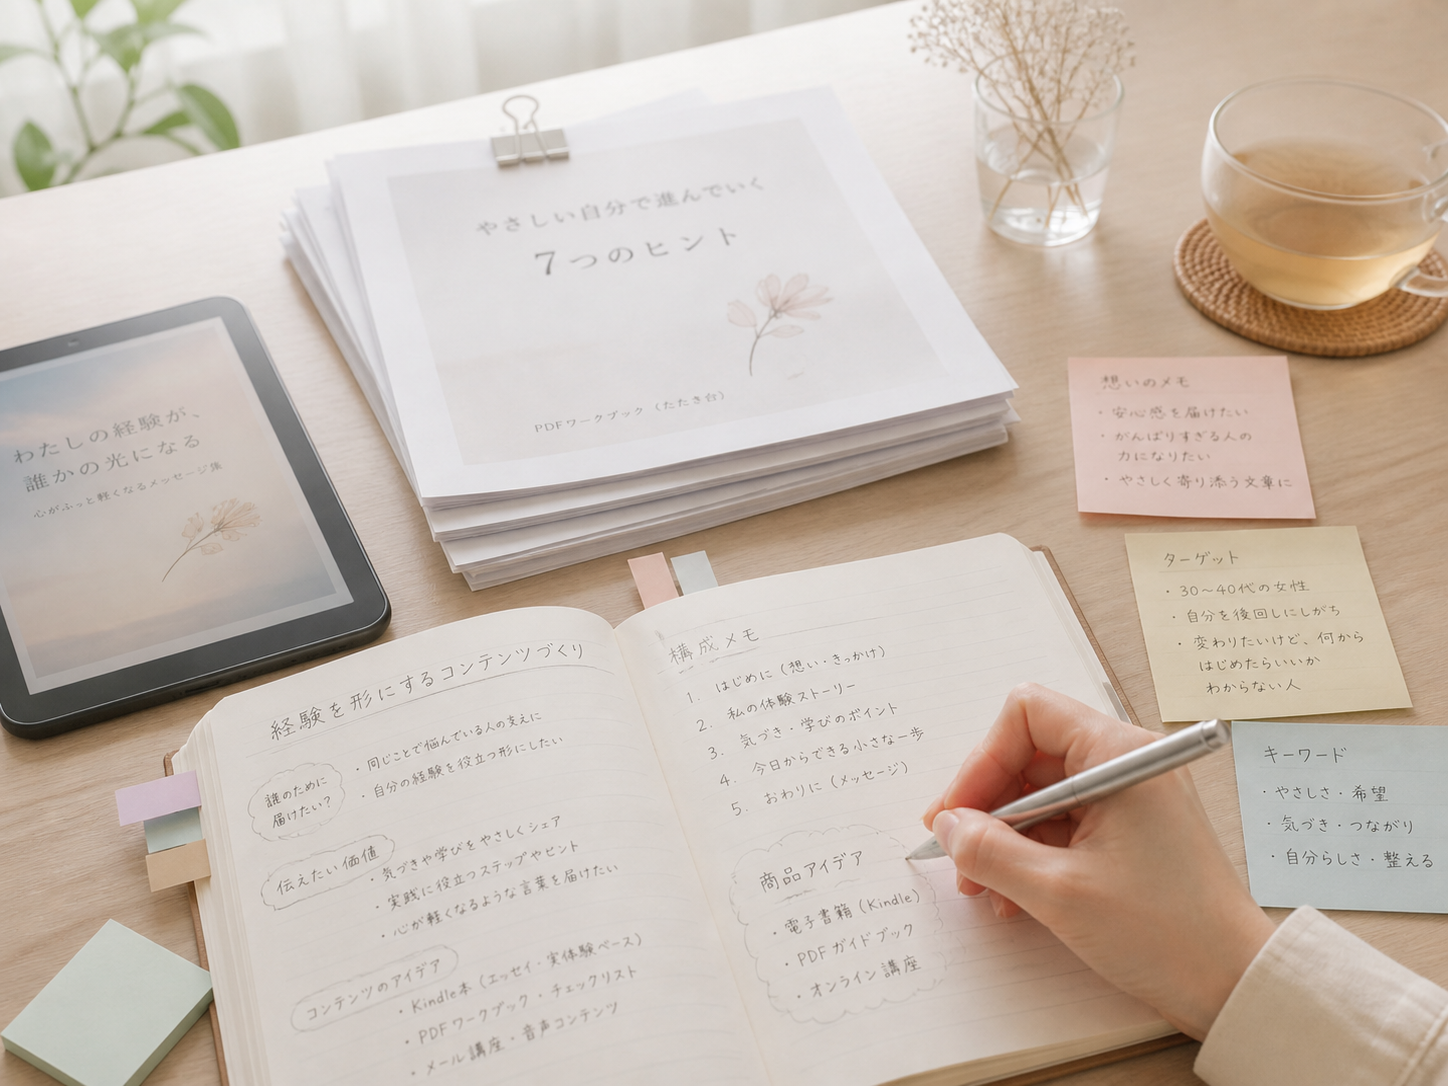 やさしい自分で進んでいく
7つのヒント
PDFワークブック（たたき台）
わたしの経験が、
誰かの光になる
心がふっと軽くなるメッセージ集
想いのメモ
・安心感を届けたい
・がんばりすぎる人の
力になりたい
・やさしく寄り添う文章に
ターゲット
・30〜40代の女性
・自分を後回しにしがち
・変わりたいけど、何から
はじめたらいいか
わからない人
キーワード
・やさしさ・希望
・気づき・つながり
・自分らしさ・整える
経験を形にするコンテンツづくり
誰のために
届けたい?
・同じことで悩んでいる人の支えに
・自分の経験を役立つ形にしたい
伝えたい価値
・気づきや学びをやさしくシェア
・実践に役立つステップやヒント
・心が軽くなるような言葉を届けたい
コンテンツのアイデア
・Kindle本（エッセイ・実体験ベース）
・PDFワークブック・チェックリスト
・メール講座・音声コンテンツ
構成メモ
1. はじめに（想い・きっかけ）
2. 私の体験ストーリー
3. 気づき・学びのポイント
4. 今日からできる小さな一歩
5. おわりに（メッセージ）
商品アイデア
・電子書籍（Kindle）
・PDFガイドブック
・オンライン講座